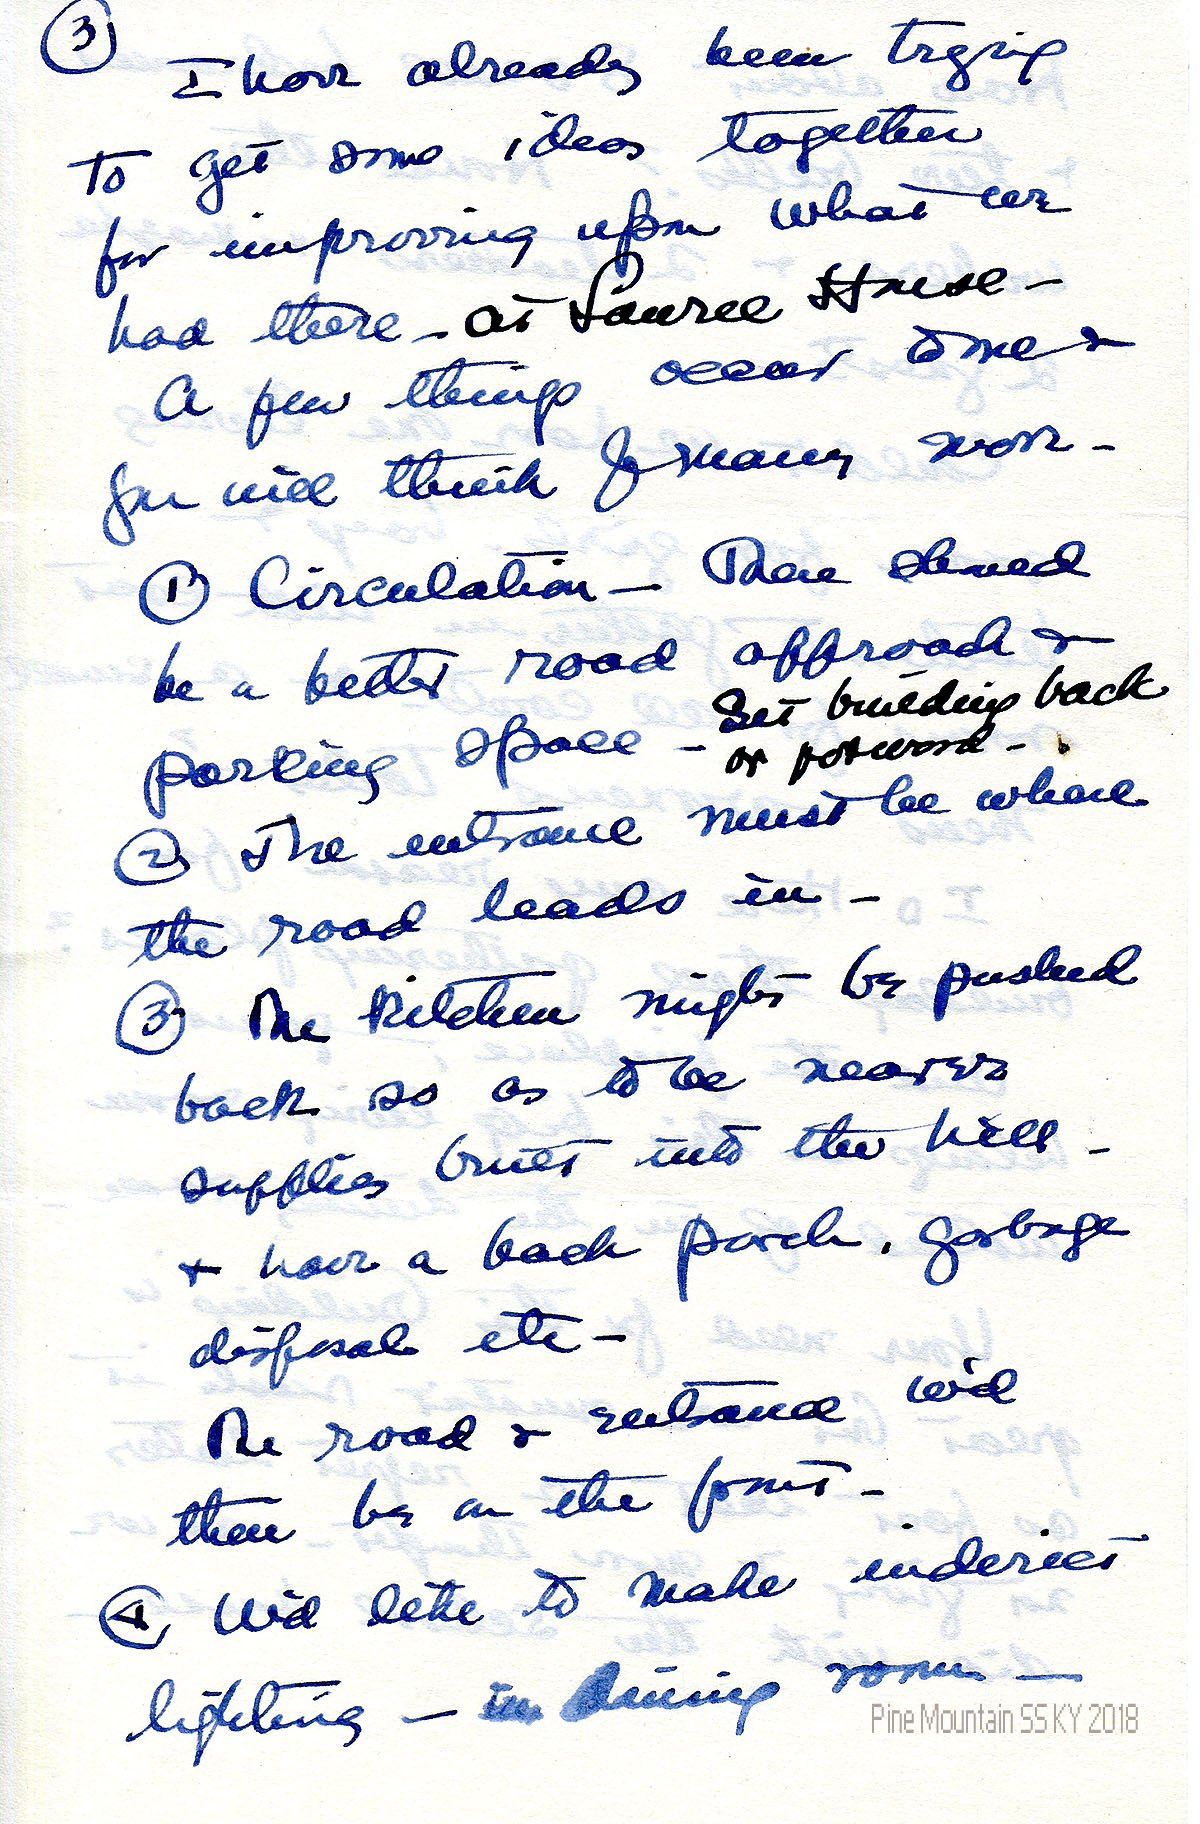 3
I have already been trying
to get some ideas together
for improving upon what we
had there - at Laurel House -
A few things occur to me &
you will think of many more -
1 Circulation - There should
be a better road approach &
parking space - Set building back
or forward -
2 The entrance must be where
the road leads in -
3 The kitchen might be pushed
back so as to be nearer
supplies built into the hill -
& have a back porch, garbage
disposal etc -
The road & entrance w'd
then be on the front -
4 W'd like to make inderict
lighting - in dining room -
Pine Mountain SS KY 2018